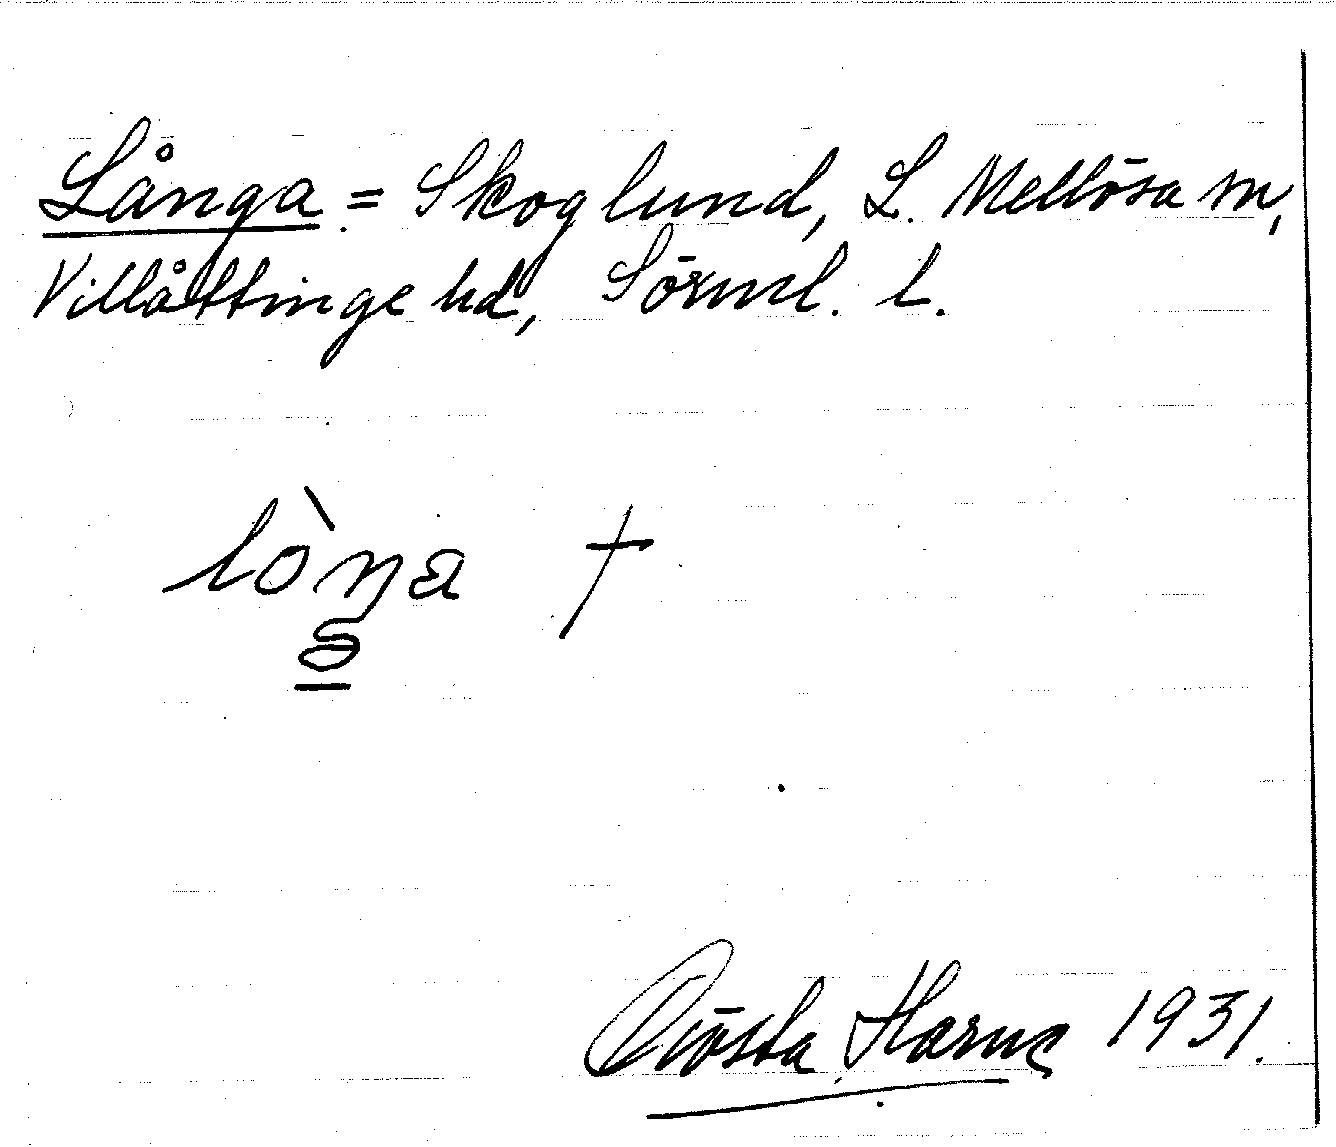 Långa = Skoglund, L. Mellösa sn,
Villåttinge hd, Sörml. l.
lòŋa †
Gösta Harne 1931.